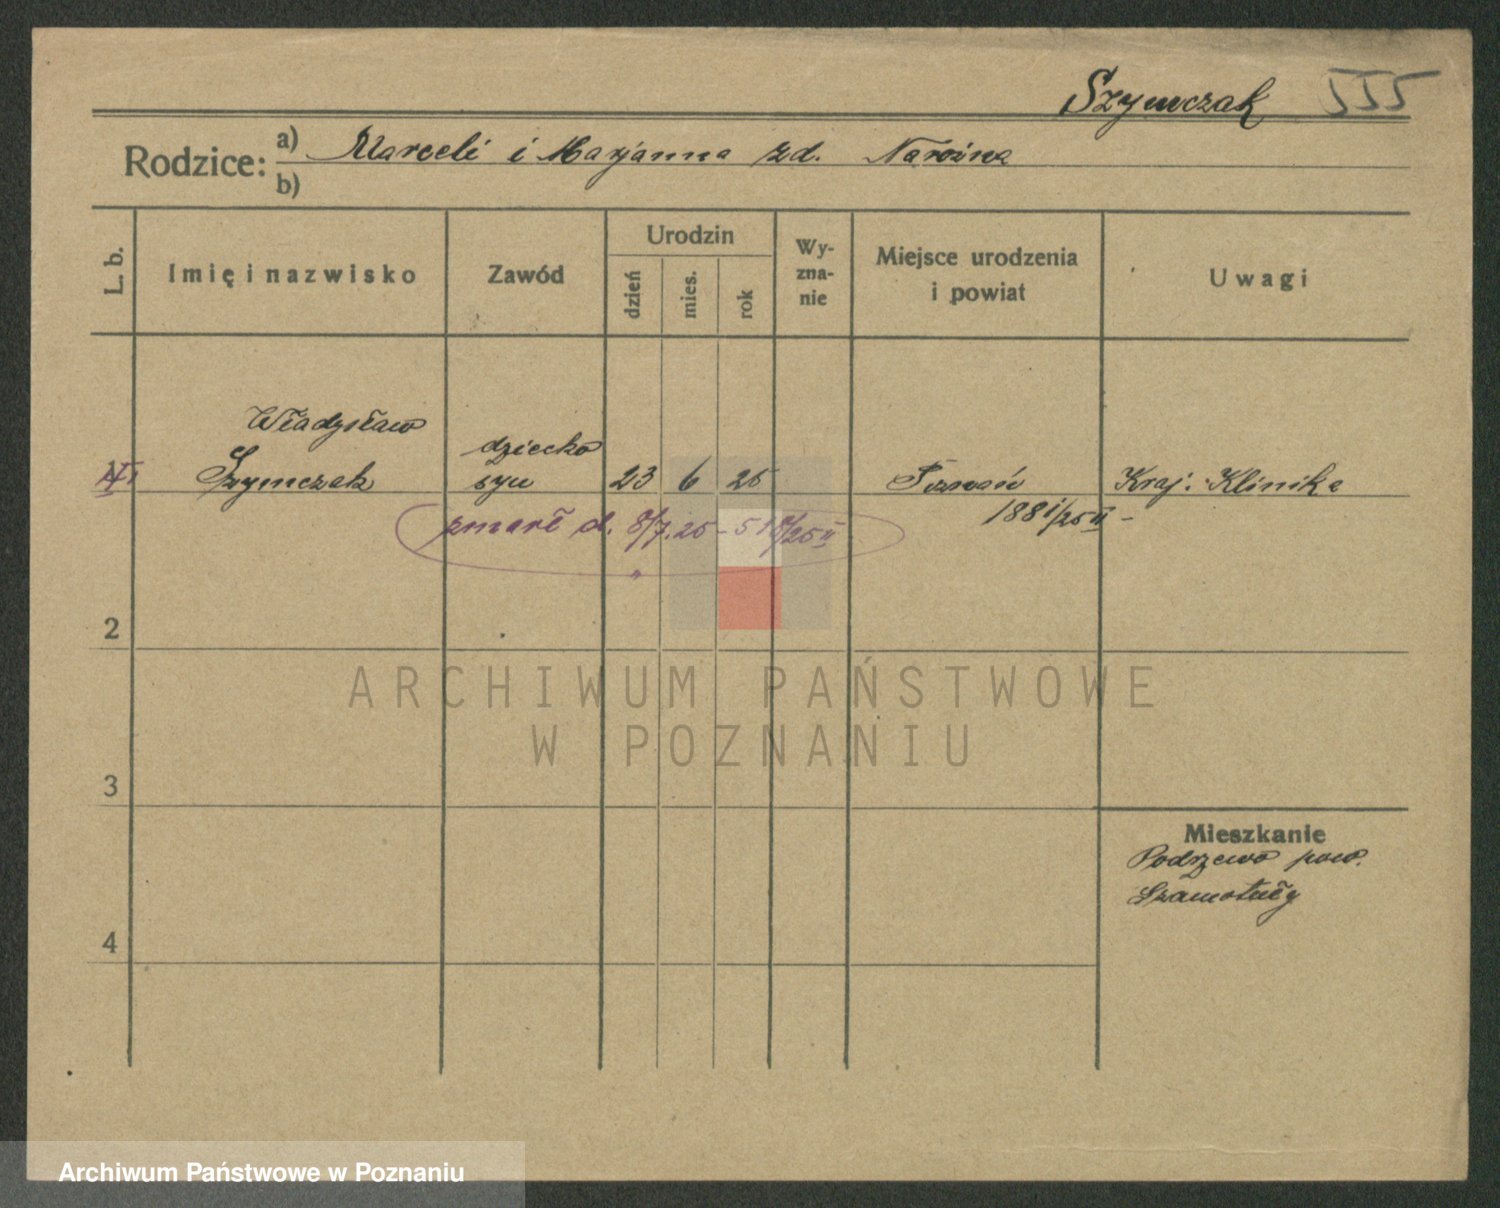 Szymczak 555
Rodzice: a) Marceli i Marjanna zd.
b)
L. b. Imię i nazwisko Zawód Urodzin dzień mies. rok Wy-zna-nie Miejsce urodzenia i powiat Uwagi
Władysław
dziecko
Szymczak syn 23 6 25 Poznań Kraj. Klinika
1881/25 II
zmarł d. 8/7.25 - 518/25 II
2
ARCHIWUM PAŃSTWOWE
W POZNANIU
3
Mieszkanie
Podrzewo pow.
Szamotuły
4
Archiwum Państwowe w Poznaniu